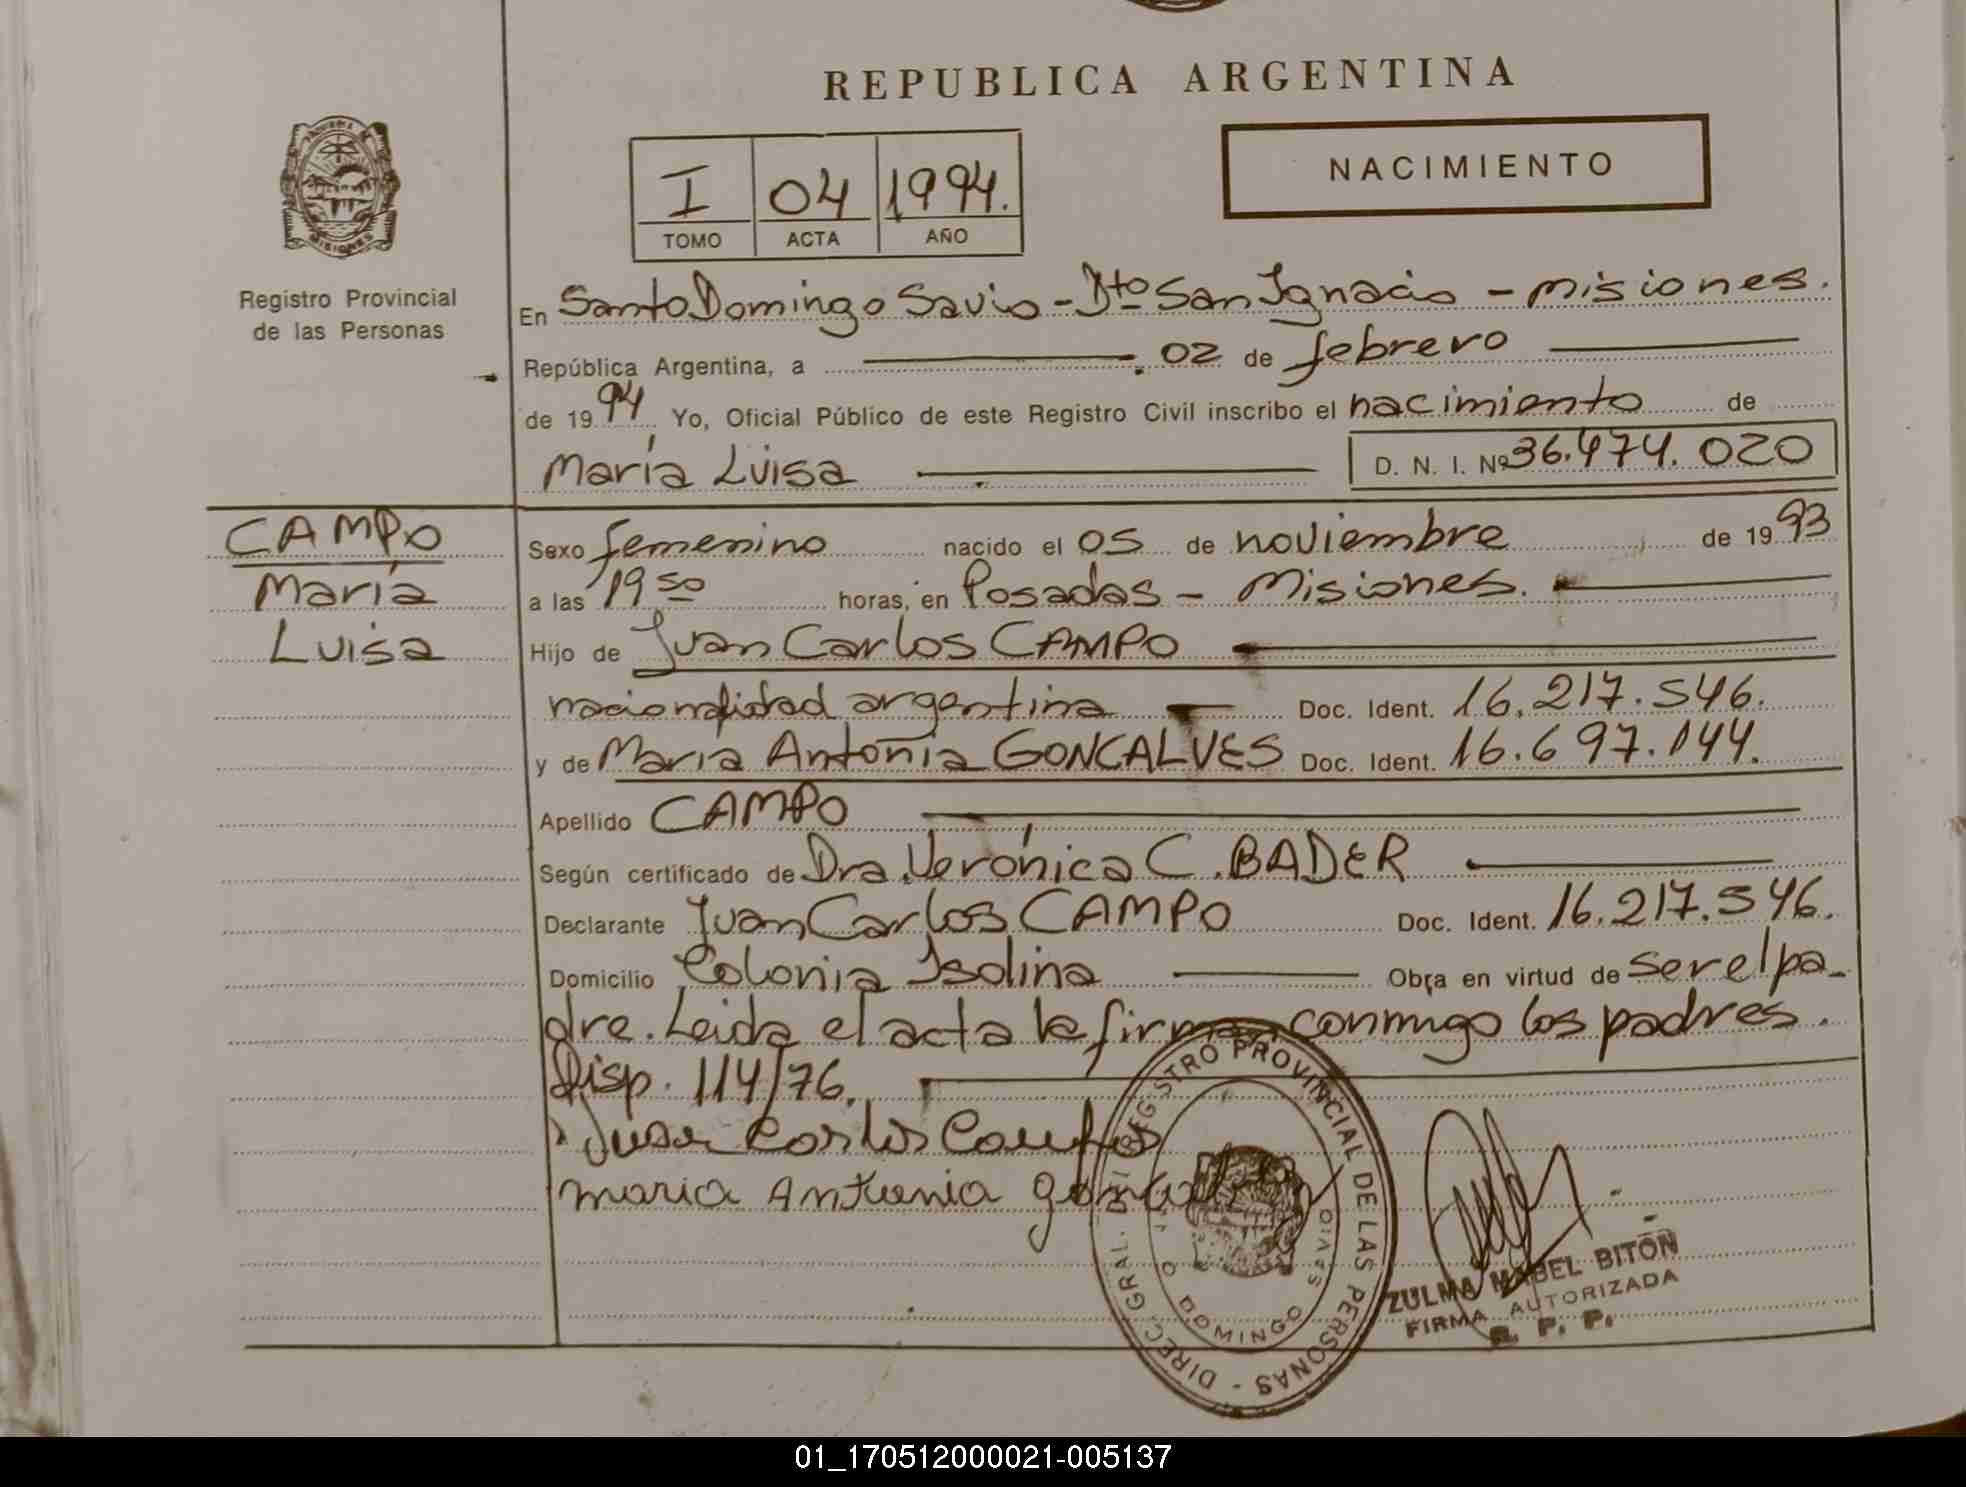 REPUBLICA ARGENTINA
I 04 1994.
TOMO ACTA AÑO
NACIMIENTO
Registro Provincial
de las Personas
En Santo Domingo Savio - Dto San Ignacio - Misiones.
República Argentina, a 02 de febrero
de 1994 Yo, Oficial Público de este Registro Civil inscribo el nacimiento de
María Luisa D. N. I. Nº 36.474.020
CAMPO
María
Luisa
Sexo femenino nacido el 05 de noviembre de 1993
a las 19 50 horas, en Posadas - Misiones.
Hijo de Juan Carlos CAMPO
nacionalidad argentina Doc. Ident. 16.217.546.
y de María Antonia GONCALVES Doc. Ident. 16.697.144.
Apellido CAMPO
Según certificado de Dra. Verónica C. BADER
Declarante Juan Carlos CAMPO Doc. Ident. 16.217.546.
Domicilio Colonia Isolina Obra en virtud de ser el pa-
dre. Leida el acta la firman conmigo los padres.
Disp. 114/76.
Juan Carlos Campo
maria Antonia
DIREC. GRAL. DEL REGISTRO PROVINCIAL DE LAS PERSONAS -
DOMINGO SAVIO
ZULMA MABEL BITÓN
FIRMA AUTORIZADA
R. P. P.
01_170512000021-005137